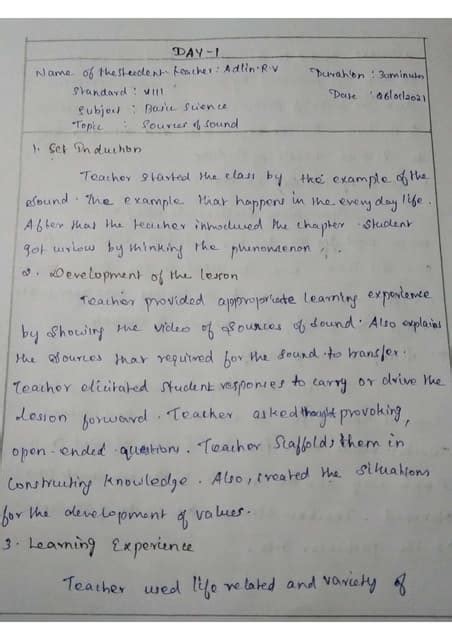 DAY-1
Name of the student teacher : Adlin.R.V Duration : 30minutes
Standard : VIII Date : 06/01/2021
Subject : Basic Science
Topic : Sources of Sound
1. Set Induction
Teacher started the class by the example of the
sound. The example that happens in the every day life.
After that the teacher introduced the chapter. Student
got by thinking the phenomenon.
2. Development of the lesson
Teacher provided appropriate learning experience
by showing the video of sources of sound. Also explains
the sources that required for the sound to transfer.
Teacher elicitated student responses to carry or drive the
lesson forward. Teacher asked thought provoking,
open-ended questions. Teacher Scaffolds them in
Constructing knowledge. Also, created the situations
for the development of values.
3. Learning Experience
Teacher used life related and variety of